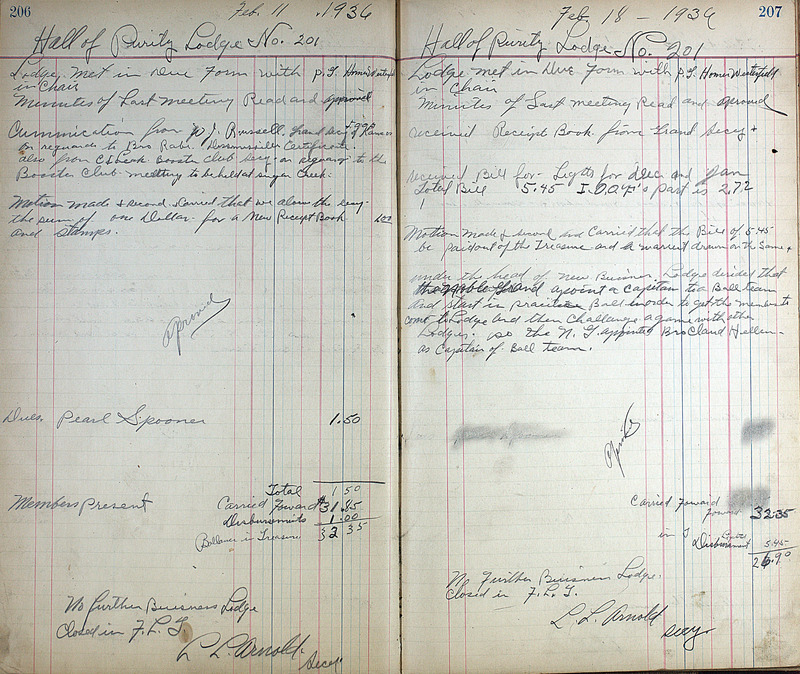 206
Feb. 11 1936
Hall of Purity Lodge No. 201
Lodge. Met in Due Form with P.G. Homer Westerfield
in Chair
Minutes of Last Meeting Read and approved
Cummication from W J. Russell, Grand Secy
in reguards to Bro Certificate.
also from Booster Club Secy in reguard to the
Booster Club meeting to be held at Creek.
Motion made & second Carried that we alow the Secy
the sum of one Dollar for a New Receipt Book 1.00
and stamps.
Aproved
Dues. Pearl Spooner 1.50
Total 1 50
Members Present Carried Foward $31.85
Disburmits 1.00
Ballance in Treasure 32 35
No further Buisiness Lodge
Closed in F. L. T
L L. Arnold.
Secy
207
Feb. 18 - 1936
Hall of Purity Lodge No. 201
Lodge met in Due Form with P.G Homer Westerfield
in Chair
Minutes of Last meeting Read and aproved
received Receipt Book from Grand Secy +
received Bill for Lights for Dec and Jan
Total Bill 5.45 I.O.O.F's part is 2.72
Motion Made & second and Carried that the Bill of 5.45
be paid out of the Treasure and a warrent drawn on the Same +
under the head of New Buisness. Lodge decided that
the Noble Grand apoint a Capitan to a Ball team
and start in practice Ball inorder to get the members to
come to Lodge and then Challange a game with other
Lodges. so the N. G appointed Bro Claud
as Capitain of Ball team.
Carried Foward
foward 32.35
in T
Disburment 5.45
26.90
No Further Buisiness Lodge.
Closed in F. L. T.
L. L. Arnold
Secy